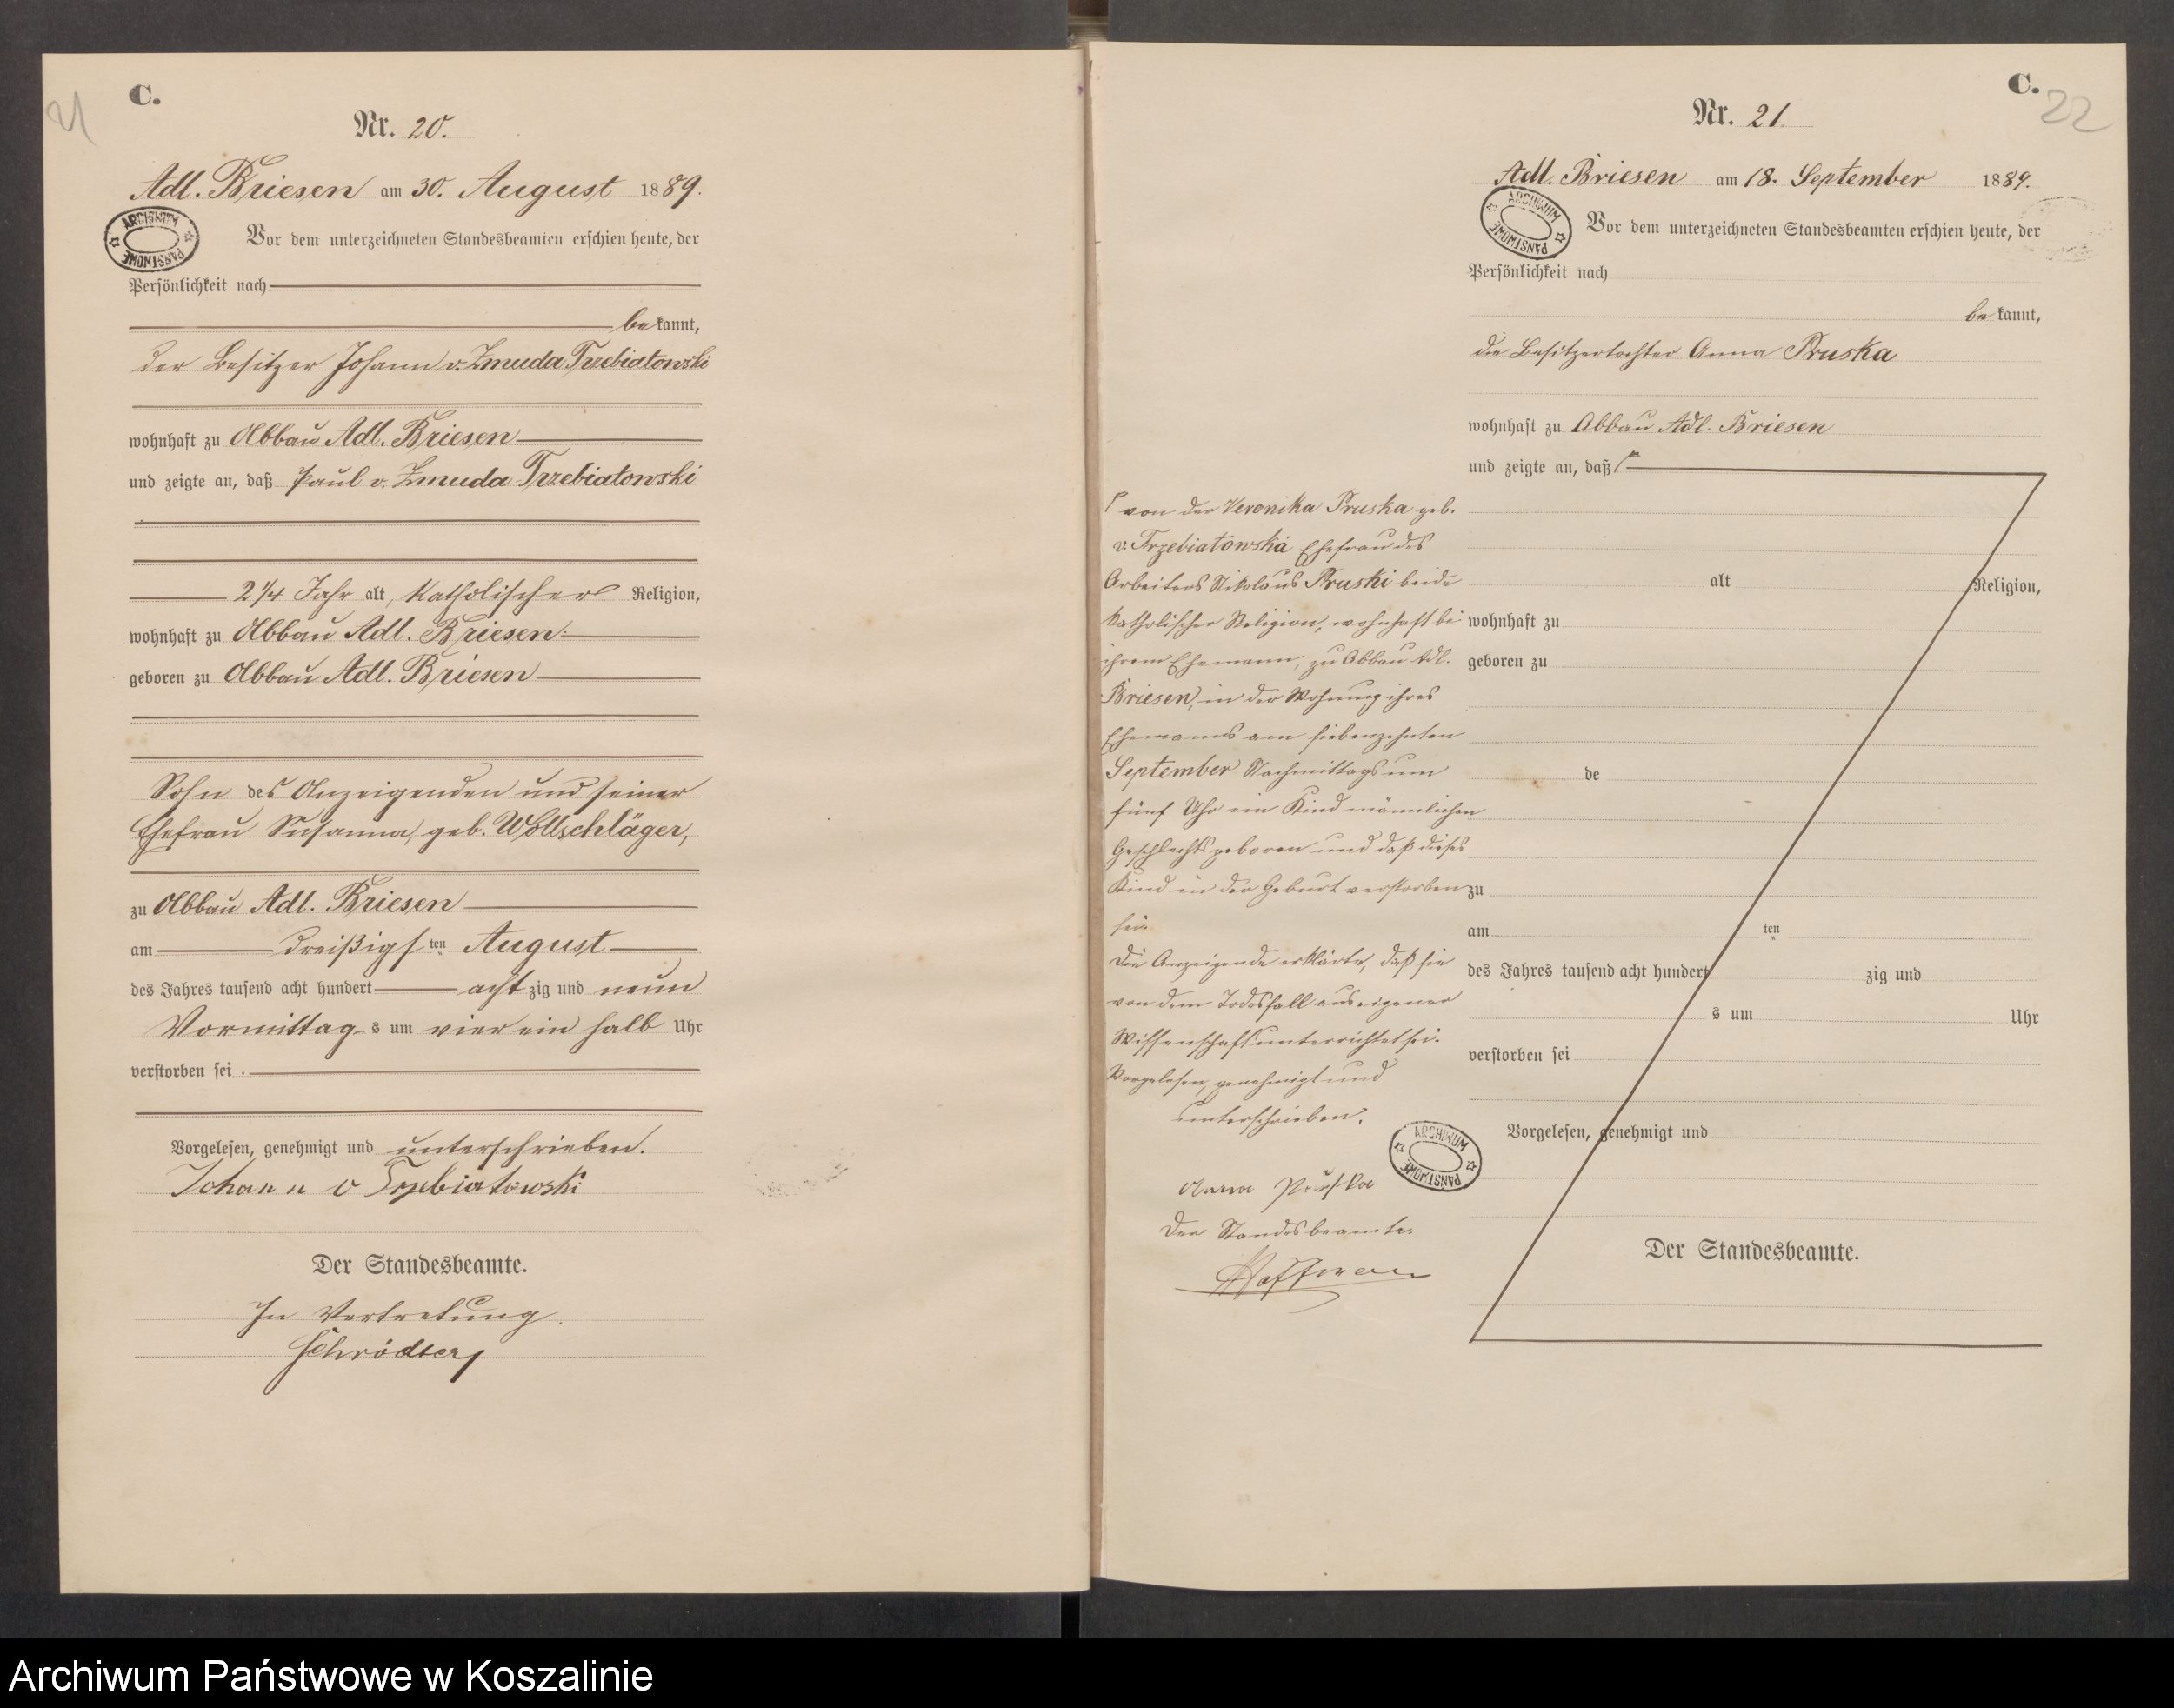 C.
21
Nr. 20.
Adl. Briesen am 30. August 1889.
ARCHIWUM PAŃSTWOWE
Vor dem unterzeichneten Standesbeamten erschien heute, der
Persönlichkeit nach
bekannt,
der Besitzer Johann v. Zmuda Trzebiatowski
wohnhaft zu Abbau Adl. Briesen
und zeigte an, daß Paul v. Zmuda Trzebiatowski
2 1/4 Jahr alt, katholischer Religion,
wohnhaft zu Abbau Adl. Briesen
geboren zu Abbau Adl. Briesen
Sohn des Anzeigenden und seiner
Ehefrau Susanna, geb. Wollschläger,
zu Abbau Adl. Briesen
am dreißigsten August
des Jahres tausend acht hundert achtzig und neun
Vormittags um vier ein halb Uhr
verstorben sei.
Vorgelesen, genehmigt und unterschrieben.
Johann v Trzebiatowski
Der Standesbeamte.
In Vertretung.
Schröder
C.
22
Nr. 21.
Adl. Briesen am 18. September 1889.
ARCHIWUM PAŃSTWOWE
Vor dem unterzeichneten Standesbeamten erschien heute, der
Persönlichkeit nach
bekannt,
die Besitzertochter Anna Pruska
wohnhaft zu Abbau Adl. Briesen
und zeigte an, daß
von der Veronika Pruska geb.
v. Trzebiatowska Ehefrau des
Arbeiters Nikolaus Pruski beide
katholischer Religion, wohnhaft bei
ihrem Ehemann, zu Abbau Adl.
Briesen, in der Wohnung ihres
Ehemanns am siebenzehnten
September Nachmittags um
fünf Uhr ein Kind männlichen
Geschlechts geboren und daß dieses
Kind in der Geburt verstorben
sei.
Die Anzeigende erklärte, daß sie
von dem Todesfall aus eigener
Wissenschaft unterrichtet sei.
Vorgelesen, genehmigt und
unterschrieben.
Anna Pruska
Der Standesbeamte.
Hoffmann
ARCHIWUM PAŃSTWOWE
alt Religion,
wohnhaft zu
geboren zu
de
zu
am ten
des Jahres tausend acht hundert zig und
s um Uhr
verstorben sei
Vorgelesen, genehmigt und
Der Standesbeamte.
Archiwum Państwowe w Koszalinie